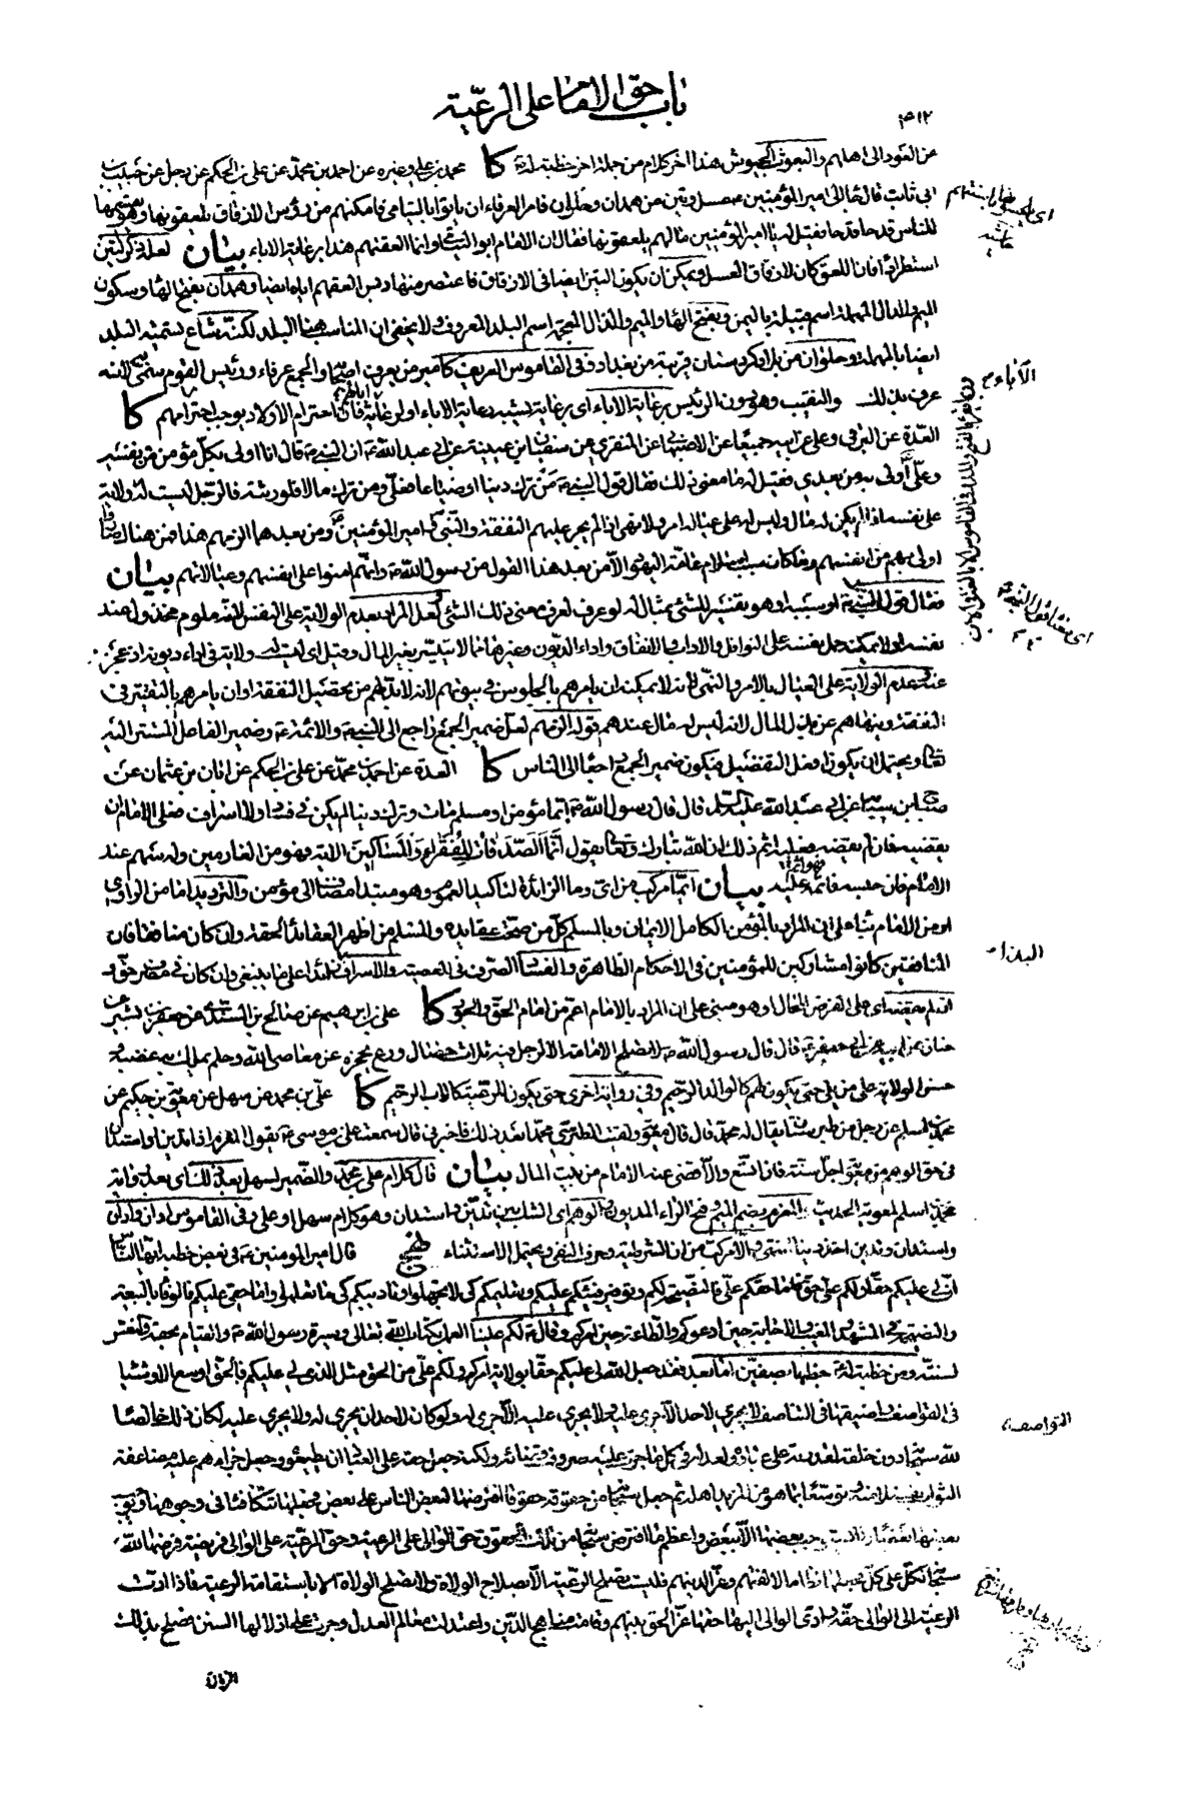 باب حق الامام على الرعية
عن العود الى اهاليهم والبعوث الجيوش هذا اخر كلام من جملة اخر خطبته له ع كا محمد بن علي وغيره عن احمد بن محمد عن علي بن الحكم عن رجل عن حبيب
ابي ثابت قال جاء الى امير المؤمنين ع عسل وتين من همدان وحلوان فامر العرفاء ان ياتوا باليتامى فامكنهم من رؤس الازقاق يلعقونها وهو يقسمها
للناس قدحا قدحا فقيل له يا امير المؤمنين ما لهم يلعقونها فقال ان الامام ابو اليتامى وانما العقتهم هذا برعاية الاباء بيان لعل ذكر التين
استطرادا فان اللعق كان لازقاق العسل ويمكن ان يكون التين ايضا في الازقاق فاعتصر منها دبس العقهم اياه ايضا وهمدان بفتح الهاء وسكون
الميم والدال المهملة اسم قبيلة باليمن وبفتح الهاء والميم والذال المعجمة اسم البلد المعروف ولا يخفى ان المناسب هنا البلد لكنه شاع تسمية البلد
ايضا بالمهملة وحلوان من بلاد كردستان قريبة من بغداد وفي القاموس العريف كامير من يعرف اصحابه والجمع عرفاء ورئيس القوم سمي لانه
عرف بذلك والنقيب وهو دون الرئيس برعاية الاباء اي رعاية تشبه رعاية الاباء او لرعاية ابائهم فان احترام الاولاد يوجب احترامهم كا
العدة عن البرقي وعلي عن ابيه جميعا عن الاصبهاني عن المنقري عن سفيان بن عيينة عن ابي عبد الله ع ان النبي ص قال انا اولى بكل مؤمن من نفسه
وعلي اولى به من بعدي فقيل له ما معنى ذلك فقال قول النبي ص من ترك دينا او ضياعا فعلي ومن ترك مالا فلورثته فالرجل ليست له ولاية
على نفسه اذا لم يكن له مال وليس له على عياله امر ولا نهي اذا لم يجر عليهم النفقة والنبي ص وامير المؤمنين ع ومن بعدهما الزمهم هذا فمن هناك صاروا
اولى بهم من انفسهم وما كان سبب اسلام عامة اليهود الا من بعد هذا القول من رسول الله ص وانهم امنوا على انفسهم وعيالاتهم بيان
فقال قول النبي ص او سببه او هو تفسير للشئ بمثال له لو عرف لعرف معنى ذلك الشئ لعل المراد بعدم الولاية على النفس انه ملوم مخذول عند
نفسه او لا يمكنه حمل نفسه على النوافل والاداب والانفاق واداء الديون وغيرها مما لا يتيسر بغير المال وقيل اي ليست له ولاية في اداء ديونه اذ عجز
عنه وعدم الولاية على العيال بالامر والنهي لانه لا يمكنه ان يامرهم بالجلوس في بيوتهم لانه لا بد لهم من تحصيل النفقة او ان يامرهم بالتقتير في
النفقة وينهاهم عن بذل المال لانه ليس له مال عندهم قوله الزمهم لعل ضمير الجمع راجع الى النبي ص والائمة ع وضمير الفاعل المستتر اليه
تعالى ويحتمل ان يكون افعل التفضيل فيكون ضمير الجمع راجعا الى الناس كا العدة عن احمد بن محمد عن علي بن الحكم عن ابان بن عثمان عن
صباح بن سيابة عن ابي عبد الله عليه السلام قال قال رسول الله ص ايما مؤمن او مسلم مات وترك دينا لم يكن في فساد ولا اسراف فعلى الامام ان
يقضيه فان لم يقضه فعليه اثم ذلك ان الله تبارك وتعالى يقول انما الصدقات للفقراء والمساكين الاية فهو من الغارمين وله سهم عند
الامام فان حبسه فاثمه عليه بيان ايما مركب من اي وما الزائدة لتاكيد العموم وهو مبتدا مضاف الى مؤمن والترديد اما من الراوي
او من الامام بناء على ان المراد بالمؤمن الكامل الايمان وبالمسلم كل من صحت عقايده والمسلم من اظهر العقائد الحقة وان كان منافقا فان
المنافقين كانوا مشاركين للمؤمنين في الاحكام الظاهرة والفساد الصرف في المعصية والاسراف زائدا على ما ينبغي وان كان في مصرف حق
على بن ابراهيم عن صالح بن السندي عن جعفر بن بشير عن
حنان عن ابيه عن ابي جعفر ع قال قال رسول الله ص لا تصلح الامامة الا لرجل فيه ثلاث خصال ورع يحجزه عن معاصي الله وحلم يملك به غضبه و
حسن الولاية على من يلي حتى يكون لهم كالوالد الرحيم وفي رواية اخرى حتى يكون للرعية كالاب الرحيم كا علي بن محمد عن سهل عن معوية بن حكيم عن
محمد بن اسلم عن رجل من طبرستان يقال له محمد قال قال معوية ولقيت الطبري محمدا بعد ذلك فاخبرني قال سمعت علي بن موسى ع يقول المغرم اذا تدين او استدان
في حق الوهم من معوية اجل سنة فان اتسع والا قضى عنه الامام من بيت المال بيان قال كلام علي بن محمد والضمير لسهل بعد ذلك اي بعد رواية
محمد بن اسلم لمعوية الحديث والمغرم بضم الميم وفتح الراء المديون والوهم اي الشك بين تدين واستدان وهو كلام سهل او علي وفي القاموس ادان وادان
واستدان وتدين اخذ دينا انتهى والا مركب من ان الشرطية وحرف النفي ويحتمل الاستثناء نهج قال امير المؤمنين ع في بعض خطبه ايها الناس
ان لي عليكم حقا ولكم علي حق فاما حقكم علي فالنصيحة لكم وتوفير فيئكم عليكم وتعليمكم كي لا تجهلوا وتاديبكم كي ما تعلموا واما حقي عليكم فالوفاء بالبيعة
والنصيحة في المشهد والمغيب والاجابة حين ادعوكم والطاعة حين امركم وقال ع لكم علينا العمل بكتاب الله تعالى وسيرة رسول الله ص والقيام بحقه والنعش
لسنته ومن خطبة له ع خطبها بصفين اما بعد فقد جعل الله لي عليكم حقا بولاية امركم ولكم علي من الحق مثل الذي لي عليكم فالحق اوسع الاشيا
في التواصف واضيقها في التناصف لا يجري لاحد الا جرى عليه ولا يجري عليه الا جرى له ولو كان لاحد ان يجري له ولا يجري عليه لكان ذلك خالصا
لله سبحانه دون خلقه لقدرته على عباده ولعدله في كل ما جرت عليه صروف قضائه ولكنه جعل حقه على العباد ان يطيعوه وجعل جزاءهم عليه مضاعفة
الثواب تفضلا منه وتوسعا بما هو من المزيد اهله ثم جعل سبحانه من حقوقه حقوقا افترضها لبعض الناس على بعض فجعلها تتكافا في وجوهها ويوجب
بعضها بعضا ولا يستوجب بعضها الا ببعض واعظم ما افترض سبحانه من تلك الحقوق حق الوالي على الرعية وحق الرعية على الوالي فريضة فرضها الله
سبحانه لكل على كل فجعلها نظاما لالفتهم وعزا لدينهم فليست تصلح الرعية الا بصلاح الولاة ولا تصلح الولاة الا باستقامة الرعية فاذا ادت
الرعية الى الوالي حقه وادى الوالي اليها حقها عز الحق بينهم وقامت مناهج الدين واعتدلت معالم العدل وجرت على اذلالها السنن فصلح بذلك
الزمان
الاباء
التواصف